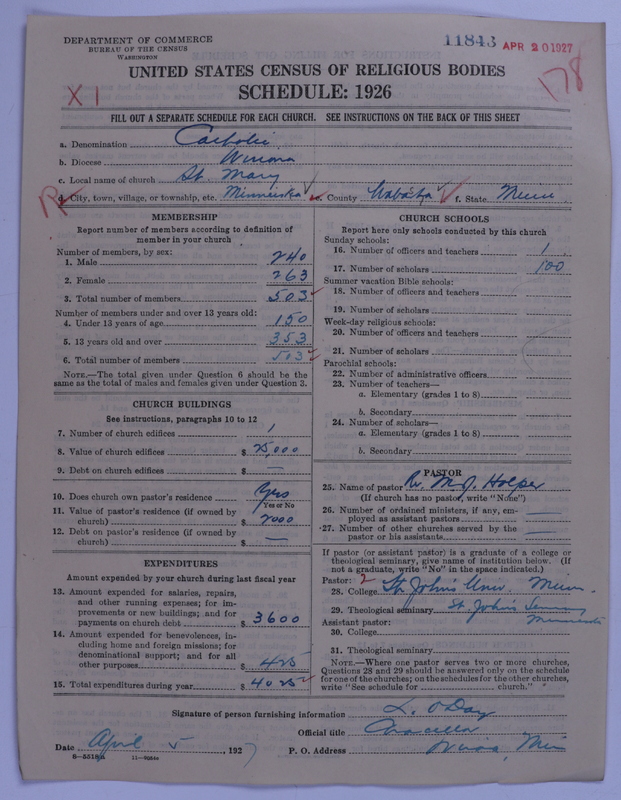 DEPARTMENT OF COMMERCE
BUREAU OF THE CENSUS
WASHINGTON
11843 APR 20 1927
178
X 1
UNITED STATES CENSUS OF RELIGIOUS BODIES
SCHEDULE: 1926
FILL OUT A SEPARATE SCHEDULE FOR EACH CHURCH. SEE INSTRUCTIONS ON THE BACK OF THIS SHEET
a. Denomination Catholic
b. Diocese Winona
c. Local name of church St. Mary
d. City, town, village, or township, etc. Minneiska e. County Wabasha f. State Minn
R
MEMBERSHIP
Report number of members according to definition of member in your church
Number of members, by sex:
1. Male 240
2. Female 263
3. Total number of members 503
Number of members under and over 13 years old:
4. Under 13 years of age 150
5. 13 years old and over 353
6. Total number of members 503
NOTE.—The total given under Question 6 should be the
same as the total of males and females given under Question 3.
CHURCH BUILDINGS
See instructions, paragraphs 10 to 12
7. Number of church edifices 1
8. Value of church edifices $ 25,000
9. Debt on church edifices $ —
10. Does church own pastor's residence Yes
Yes or No
11. Value of pastor's residence (if owned by
church) $ 7000
12. Debt on pastor's residence (if owned by
church) $ —
EXPENDITURES
Amount expended by your church during last fiscal year
13. Amount expended for salaries, repairs,
and other running expenses; for im-
provements or new buildings; and for
payments on church debt $ 3600
14. Amount expended for benevolences, in-
cluding home and foreign missions; for
denominational support; and for all
other purposes $ 425
15. Total expenditures during year $ 4025
CHURCH SCHOOLS
Report here only schools conducted by this church
Sunday schools:
16. Number of officers and teachers 1
17. Number of scholars 100
Summer vacation Bible schools:
18. Number of officers and teachers
19. Number of scholars
Week-day religious schools:
20. Number of officers and teachers
21. Number of scholars
Parochial schools:
22. Number of administrative officers
23. Number of teachers—
a. Elementary (grades 1 to 8)
b. Secondary
24. Number of scholars—
a. Elementary (grades 1 to 8)
b. Secondary
PASTOR
25. Name of pastor Rev. M. J. Holper
(If church has no pastor, write "None")
26. Number of ordained ministers, if any, em-
ployed as assistant pastors —
27. Number of other churches served by the
pastor or his assistants —
If pastor (or assistant pastor) is a graduate of a college or
theological seminary, give name of institution below. (If
not a graduate, write "No" in the space indicated.)
Pastor: 2
28. College St. John's Univ. Minn.
29. Theological seminary St. John's Seminary
Minnesota
Assistant pastor:
30. College
31. Theological seminary
NOTE.—Where one pastor serves two or more churches,
Questions 28 and 29 should be answered only on the schedule
for one of the churches; on the schedules for the other churches,
write "See schedule for church."
Signature of person furnishing information L. O'Day
Official title Chancellor
Date April 5, 1927 P. O. Address Winona, Minn